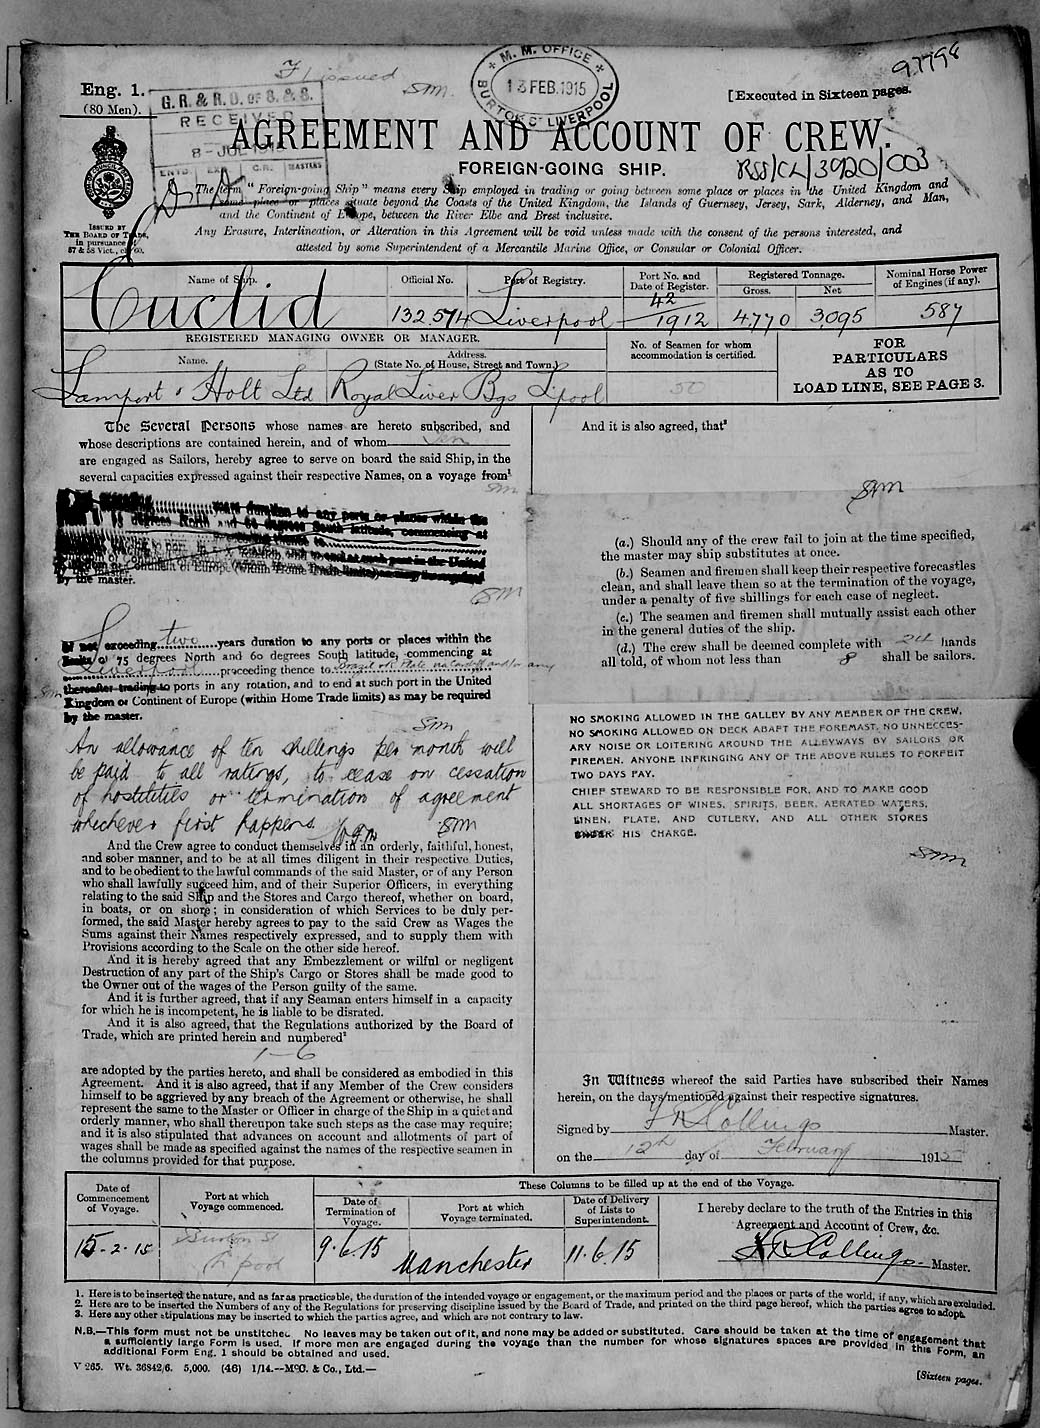 97798
F. issued
SM.
Eng. 1.
(80 Men).
+ M. M. OFFICE +
13 FEB. 1915
BURTON ST LIVERPOOL
[Executed in Sixteen pages.
G. R. & R. O. OF S. & S.
RECEIVED
8-JUL 191
ENTD. EXD. C.R. MASTERS
AGREEMENT AND ACCOUNT OF CREW.
FOREIGN-GOING SHIP.
RSS/CL/3920/003
ISSUED BY
THE BOARD OF TRADE,
in pursuance of
57 & 58 Vict., ch. 60.
The term "Foreign-going Ship" means every Ship employed in trading or going between some place or places in the United Kingdom and
some place or places situate beyond the Coasts of the United Kingdom, the Islands of Guernsey, Jersey, Sark, Alderney, and Man,
and the Continent of Europe, between the River Elbe and Brest inclusive.
Any Erasure, Interlineation, or Alteration in this Agreement will be void unless made with the consent of the persons interested, and
attested by some Superintendent of a Mercantile Marine Office, or Consular or Colonial Officer.
Name of Ship. Official No. Port of Registry. Port No. and Date of Register. Registered Tonnage. Gross. Net Nominal Horse Power of Engines (if any).
Euclid 132.574 Liverpool 42/1912 4,770 3,095 587
REGISTERED MANAGING OWNER OR MANAGER.
Name. Address.
(State No. of House, Street and Town.)
No. of Seamen for whom
accommodation is certified.
FOR
PARTICULARS
AS TO
LOAD LINE, SEE PAGE 3.
Lamport & Holt Ltd Royal Liver Bgs L'pool 50
The Several Persons whose names are hereto subscribed, and
whose descriptions are contained herein, and of whom Ten
are engaged as Sailors, hereby agree to serve on board the said Ship, in the
several capacities expressed against their respective Names, on a voyage from¹
SM
years duration to any ports or places within the
degrees North and 60 degrees South latitude, commencing at
proceeding thence to
and to end at such port in the United
Kingdom or Continent of Europe (within Home Trade limits) as may be required
by the master.
SM
Of not exceeding two years duration to any ports or places within the
limits of 75 degrees North and 60 degrees South latitude, commencing at
Liverpool proceeding thence to Plate via Cardiff and/or any
SM
thereafter trading to ports in any rotation, and to end at such port in the United
Kingdom or Continent of Europe (within Home Trade limits) as may be required
by the master.
SM
An allowance of ten shillings per month will
be paid to all ratings, to cease on cessation
of hostilities or termination of agreement
whichever first happens.
SM
And the Crew agree to conduct themselves in an orderly, faithful, honest,
and sober manner, and to be at all times diligent in their respective Duties,
and to be obedient to the lawful commands of the said Master, or of any Person
who shall lawfully succeed him, and of their Superior Officers, in everything
relating to the said Ship and the Stores and Cargo thereof, whether on board,
in boats, or on shore; in consideration of which Services to be duly per-
formed, the said Master hereby agrees to pay to the said Crew as Wages the
Sums against their Names respectively expressed, and to supply them with
Provisions according to the Scale on the other side hereof.
And it is hereby agreed that any Embezzlement or wilful or negligent
Destruction of any part of the Ship's Cargo or Stores shall be made good to
the Owner out of the wages of the Person guilty of the same.
And it is further agreed, that if any Seaman enters himself in a capacity
for which he is incompetent, he is liable to be disrated.
And it is also agreed, that the Regulations authorized by the Board of
Trade, which are printed herein and numbered²
1-6
are adopted by the parties hereto, and shall be considered as embodied in this
Agreement. And it is also agreed, that if any Member of the Crew considers
himself to be aggrieved by any breach of the Agreement or otherwise, he shall
represent the same to the Master or Officer in charge of the Ship in a quiet and
orderly manner, who shall thereupon take such steps as the case may require;
and it is also stipulated that advances on account and allotments of part of
wages shall be made as specified against the names of the respective seamen in
the columns provided for that purpose.
And it is also agreed, that³
SM
(a.) Should any of the crew fail to join at the time specified,
the master may ship substitutes at once.
(b.) Seamen and firemen shall keep their respective forecastles
clean, and shall leave them so at the termination of the voyage,
under a penalty of five shillings for each case of neglect.
(c.) The seamen and firemen shall mutually assist each other
in the general duties of the ship.
(d.) The crew shall be deemed complete with 24 hands
all told, of whom not less than 8 shall be sailors.
NO SMOKING ALLOWED IN THE GALLEY BY ANY MEMBER OF THE CREW.
NO SMOKING ALLOWED ON DECK ABAFT THE FOREMAST. NO UNNECCES-
ARY NOISE OR LOITERING AROUND THE ALLEYWAYS BY SAILORS OR
FIREMEN. ANYONE INFRINGING ANY OF THE ABOVE RULES TO FORFEIT
TWO DAYS PAY.
CHIEF STEWARD TO BE RESPONSIBLE FOR, AND TO MAKE GOOD
ALL SHORTAGES OF WINES, SPIRITS, BEER, AERATED WATERS,
LINEN, PLATE, AND CUTLERY, AND ALL OTHER STORES
UNDER HIS CHARGE.
SM
In Witness whereof the said Parties have subscribed their Names
herein, on the days mentioned against their respective signatures.
Signed by Collings Master.
on the 12th day of February 1915
These Columns to be filled up at the end of the Voyage.
Date of
Commencement
of Voyage.
Port at which
Voyage commenced.
Date of
Termination of
Voyage.
Port at which
Voyage terminated.
Date of Delivery
of Lists to
Superintendent.
I hereby declare to the truth of the Entries in this
Agreement and Account of Crew, &c.
15-2-15 Burton St L'pool 9.6.15 Manchester 11.6.15 Collings Master.
1. Here is to be inserted the nature, and as far as practicable, the duration of the intended voyage or engagement, or the maximum period and the places or parts of the world, if any, which are excluded.
2. Here are to be inserted the Numbers of any of the Regulations for preserving discipline issued by the Board of Trade, and printed on the third page hereof, which the parties agree to adopt.
3. Here any other stipulations may be inserted to which the parties agree, and which are not contrary to law.
N.B.—This form must not be unstitched. No leaves may be taken out of it, and none may be added or substituted. Care should be taken at the time of engagement that
a sufficiently large Form is used. If more men are engaged during the voyage than the number for whose signatures spaces are provided in this Form, an
additional Form Eng. 1 should be obtained and used.
V 265. Wt. 36842/6. 5,000. (46) 1/14.--McC. & Co., Ltd.—
[Sixteen pages.